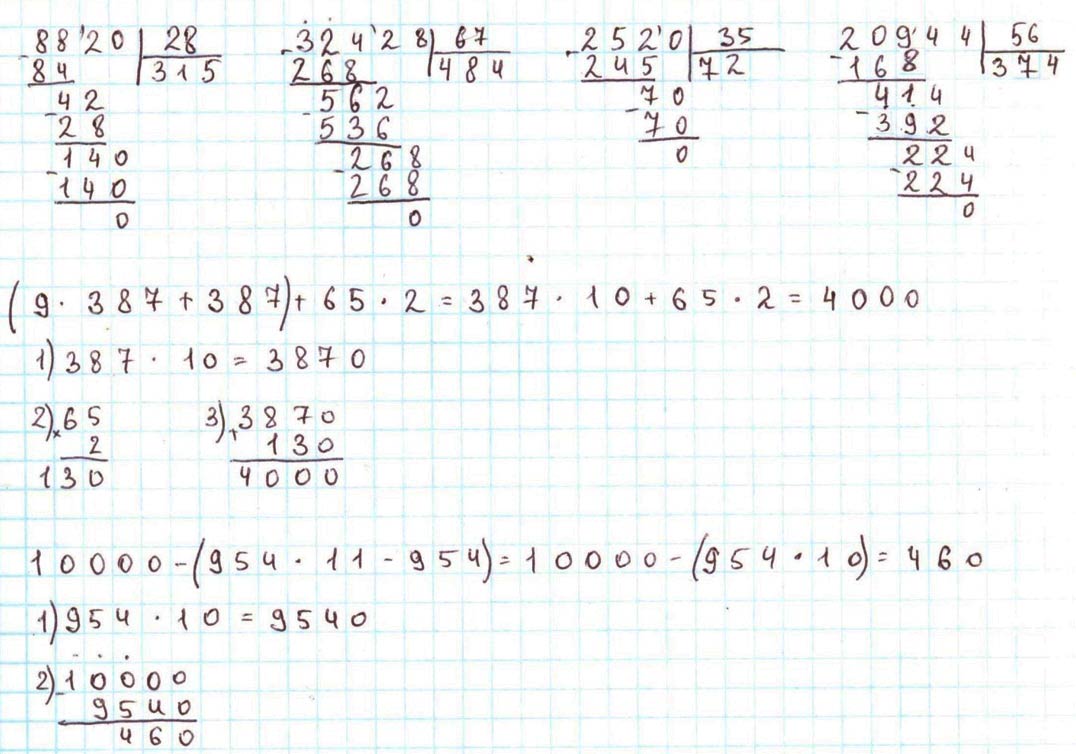 8820 28 32428 67 2520 35 20944 56
84 315 268 484 245 72 168 374
42 562 70 414
28 536 70 392
140 268 0 224
140 268 224
0 0 0
(9 · 387 + 387) + 65 · 2 = 387 · 10 + 65 · 2 = 4000
1) 387 · 10 = 3870
2) × 65 3) + 3870
2 130
130 4000
10000 - (954 · 11 - 954) = 10000 - (954 · 10) = 460
1) 954 · 10 = 9540
2) - 10000
9540
460